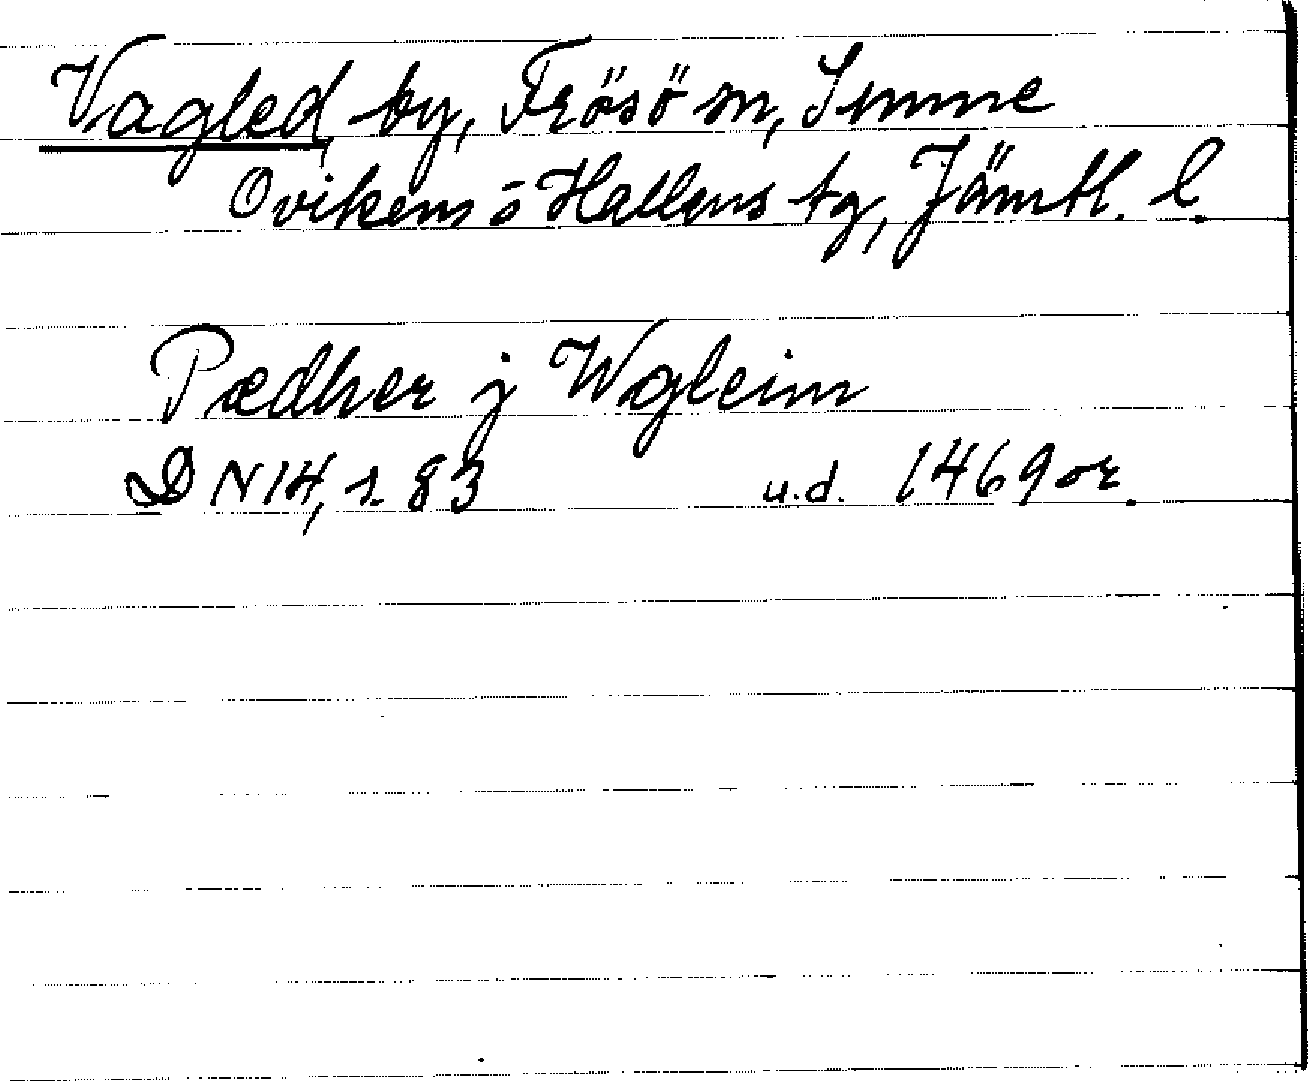 Vagled, by, Frösö sn, Sunne
Ovikens o Hallens tg, Jämtl. l.
Pædher j Wgleim
DN 14, s 83 u.d. 1469 or.